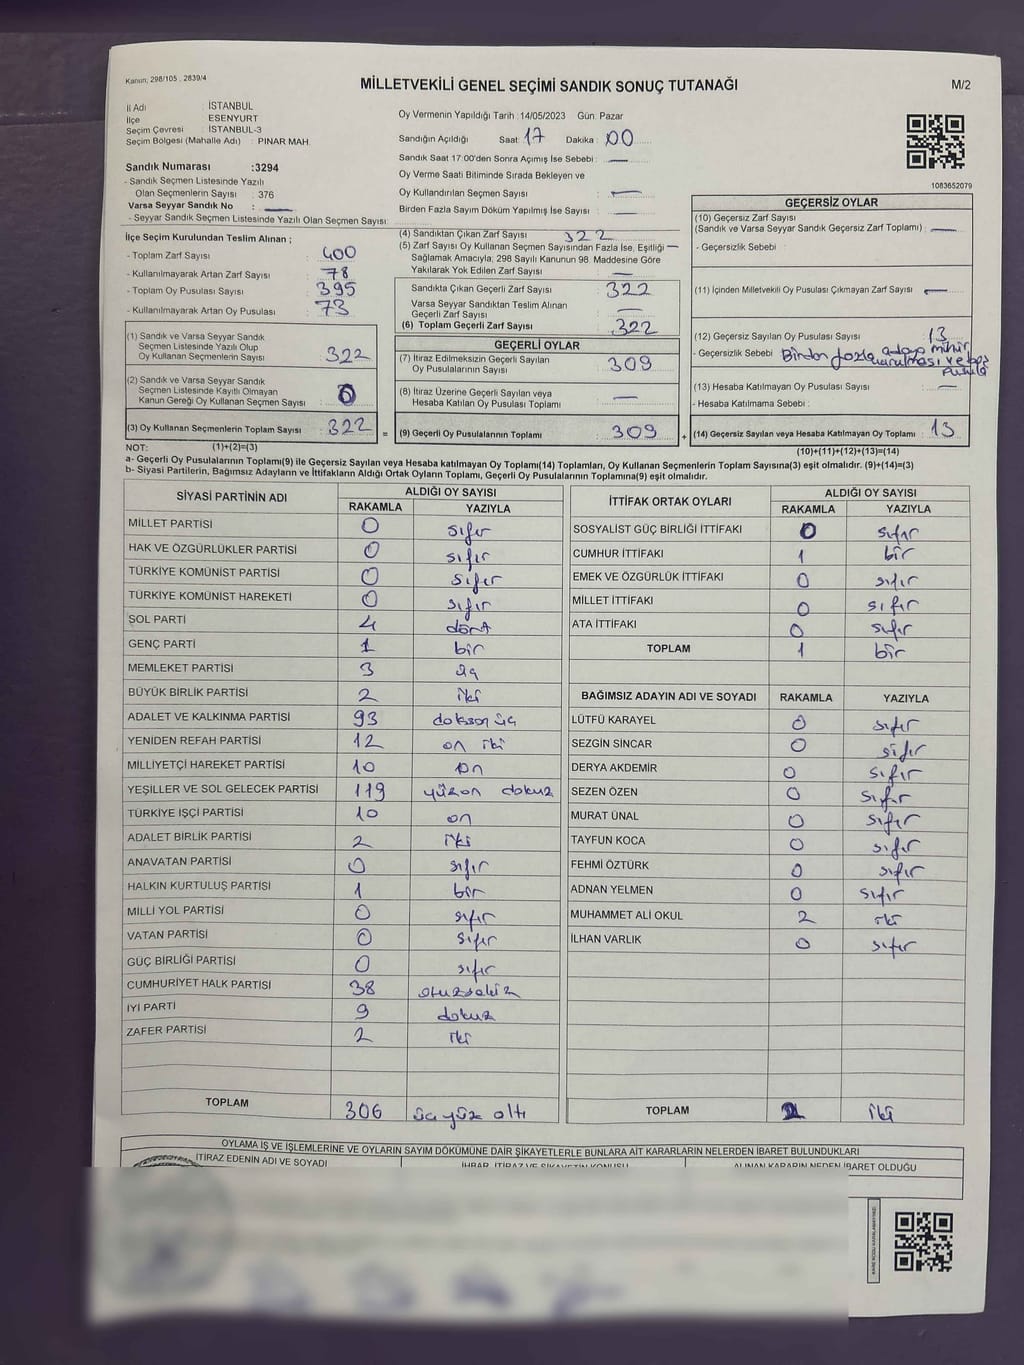 Kanun, 298/105 , 2839/4
MİLLETVEKİLİ GENEL SEÇİMİ SANDIK SONUÇ TUTANAĞI
M/2
İl Adı : İSTANBUL
İlçe : ESENYURT
Seçim Çevresi : İSTANBUL-3
Seçim Bölgesi (Mahalle Adı) : PINAR MAH.
Sandık Numarası :3294
- Sandık Seçmen Listesinde Yazılı
Olan Seçmenlerin Sayısı : 376
Varsa Seyyar Sandık No : —
- Seyyar Sandık Seçmen Listesinde Yazılı Olan Seçmen Sayısı:
Oy Vermenin Yapıldığı Tarih :14/05/2023 Gün: Pazar
Sandığın Açıldığı Saat: 17 Dakika : 00
Sandık Saat 17:00'den Sonra Açımış İse Sebebi : —
Oy Verme Saati Bitiminde Sırada Bekleyen ve
Oy Kullandırılan Seçmen Sayısı : —
Birden Fazla Sayım Döküm Yapılmış İse Sayısı : —
1083652079
İlçe Seçim Kurulundan Teslim Alınan ;
- Toplam Zarf Sayısı : 400
- Kullanılmayarak Artan Zarf Sayısı : 78
- Toplam Oy Pusulası Sayısı : 395
- Kullanılmayarak Artan Oy Pusulası : 73
(1) Sandık ve Varsa Seyyar Sandık
Seçmen Listesinde Yazılı Olup
Oy Kullanan Seçmenlerin Sayısı : 322
(2) Sandık ve Varsa Seyyar Sandık
Seçmen Listesinde Kayıtlı Olmayan
Kanun Gereği Oy Kullanan Seçmen Sayısı : 0
(3) Oy Kullanan Seçmenlerin Toplam Sayısı : 322
(4) Sandıktan Çıkan Zarf Sayısı : 322
(5) Zarf Sayısı Oy Kullanan Seçmen Sayısından Fazla İse, Eşitliği —
Sağlamak Amacıyla; 298 Sayılı Kanunun 98. Maddesine Göre
Yakılarak Yok Edilen Zarf Sayısı : —
Sandıkta Çıkan Geçerli Zarf Sayısı : 322
Varsa Seyyar Sandıktan Teslim Alınan
Geçerli Zarf Sayısı : —
(6) Toplam Geçerli Zarf Sayısı : 322
GEÇERLİ OYLAR
(7) İtiraz Edilmeksizin Geçerli Sayılan
Oy Pusulalarının Sayısı : 309
(8) İtiraz Üzerine Geçerli Sayılan veya
Hesaba Katılan Oy Pusulası Toplamı : —
= (9) Geçerli Oy Pusulalarının Toplamı : 309 +
GEÇERSİZ OYLAR
(10) Geçersiz Zarf Sayısı
(Sandık ve Varsa Seyyar Sandık Geçersiz Zarf Toplamı) : —
- Geçersizlik Sebebi :
(11) İçinden Milletvekili Oy Pusulası Çıkmayan Zarf Sayısı : —
(12) Geçersiz Sayılan Oy Pusulası Sayısı : 13
- Geçersizlik Sebebi : Birden fazla adaya mühür
vurulması ve boş
pusula
(13) Hesaba Katılmayan Oy Pusulası Sayısı : —
- Hesaba Katılmama Sebebi :
(14) Geçersiz Sayılan veya Hesaba Katılmayan Oy Toplamı : 13
NOT: (1)+(2)=(3) (10)+(11)+(12)+(13)=(14)
a- Geçerli Oy Pusulalarının Toplamı(9) ile Geçersiz Sayılan veya Hesaba katılmayan Oy Toplamı(14) Toplamları, Oy Kullanan Seçmenlerin Toplam Sayısına(3) eşit olmalıdır. (9)+(14)=(3)
b- Siyasi Partilerin, Bağımsız Adayların ve İttifakların Aldığı Oyların Toplamı, Geçerli Oy Pusulalarının Toplamına(9) eşit olmalıdır.
SİYASİ PARTİNİN ADI ALDIĞI OY SAYISI
RAKAMLA YAZIYLA
MİLLET PARTİSİ 0 sıfır
HAK VE ÖZGÜRLÜKLER PARTİSİ 0 sıfır
TÜRKİYE KOMÜNİST PARTİSİ 0 sıfır
TÜRKİYE KOMÜNİST HAREKETİ 0 sıfır
SOL PARTİ 4 dört
GENÇ PARTİ 1 bir
MEMLEKET PARTİSİ 3 üç
BÜYÜK BİRLİK PARTİSİ 2 iki
ADALET VE KALKINMA PARTİSİ 93 doksan üç
YENİDEN REFAH PARTİSİ 12 on iki
MİLLİYETÇİ HAREKET PARTİSİ 10 on
YEŞİLLER VE SOL GELECEK PARTİSİ 119 yüzon dokuz
TÜRKİYE İŞÇİ PARTİSİ 10 on
ADALET BİRLİK PARTİSİ 2 iki
ANAVATAN PARTİSİ 0 sıfır
HALKIN KURTULUŞ PARTİSİ 1 bir
MİLLİ YOL PARTİSİ 0 sıfır
VATAN PARTİSİ 0 sıfır
GÜÇ BİRLİĞİ PARTİSİ 0 sıfır
CUMHURİYET HALK PARTİSİ 38 otuzsekiz
İYİ PARTİ 9 dokuz
ZAFER PARTİSİ 2 iki
TOPLAM 306 üçyüz altı
İTTİFAK ORTAK OYLARI ALDIĞI OY SAYISI
RAKAMLA YAZIYLA
SOSYALİST GÜÇ BİRLİĞİ İTTİFAKI 0 sıfır
CUMHUR İTTİFAKI 1 bir
EMEK VE ÖZGÜRLÜK İTTİFAKI 0 sıfır
MİLLET İTTİFAKI 0 sıfır
ATA İTTİFAKI 0 sıfır
TOPLAM 1 bir
BAĞIMSIZ ADAYIN ADI VE SOYADI RAKAMLA YAZIYLA
LÜTFÜ KARAYEL 0 sıfır
SEZGİN SİNCAR 0 sıfır
DERYA AKDEMİR 0 sıfır
SEZEN ÖZEN 0 sıfır
MURAT ÜNAL 0 sıfır
TAYFUN KOCA 0 sıfır
FEHMİ ÖZTÜRK 0 sıfır
ADNAN YELMEN 0 sıfır
MUHAMMET ALİ OKUL 2 iki
İLHAN VARLIK 0 sıfır
TOPLAM 2 iki
OYLAMA İŞ VE İŞLEMLERİNE VE OYLARIN SAYIM DÖKÜMÜNE DAİR ŞİKAYETLERLE BUNLARA AİT KARARLARIN NELERDEN İBARET BULUNDUKLARI
İTİRAZ EDENİN ADI VE SOYADI
İHBAR, İTİRAZ VE ŞİKAYETİN KONUSU
ALINAN KARARIN NEDEN İBARET OLDUĞU